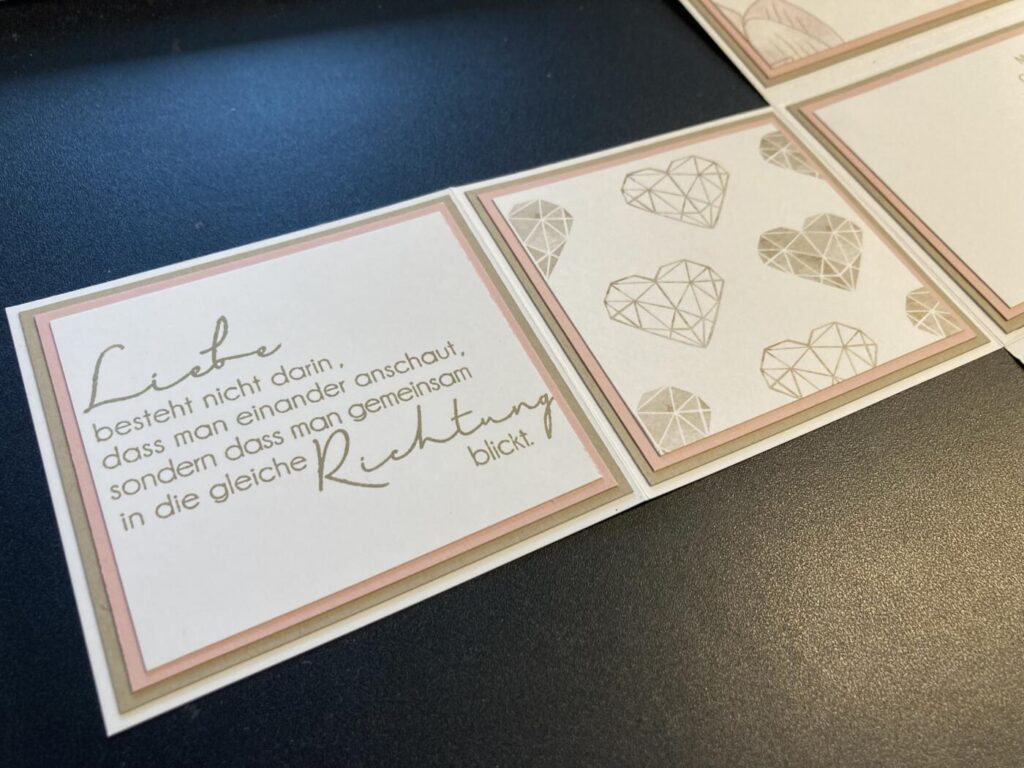 Liebe
besteht nicht darin,
dass man einander anschaut,
sondern dass man gemeinsam
in die gleiche Richtung
blickt.